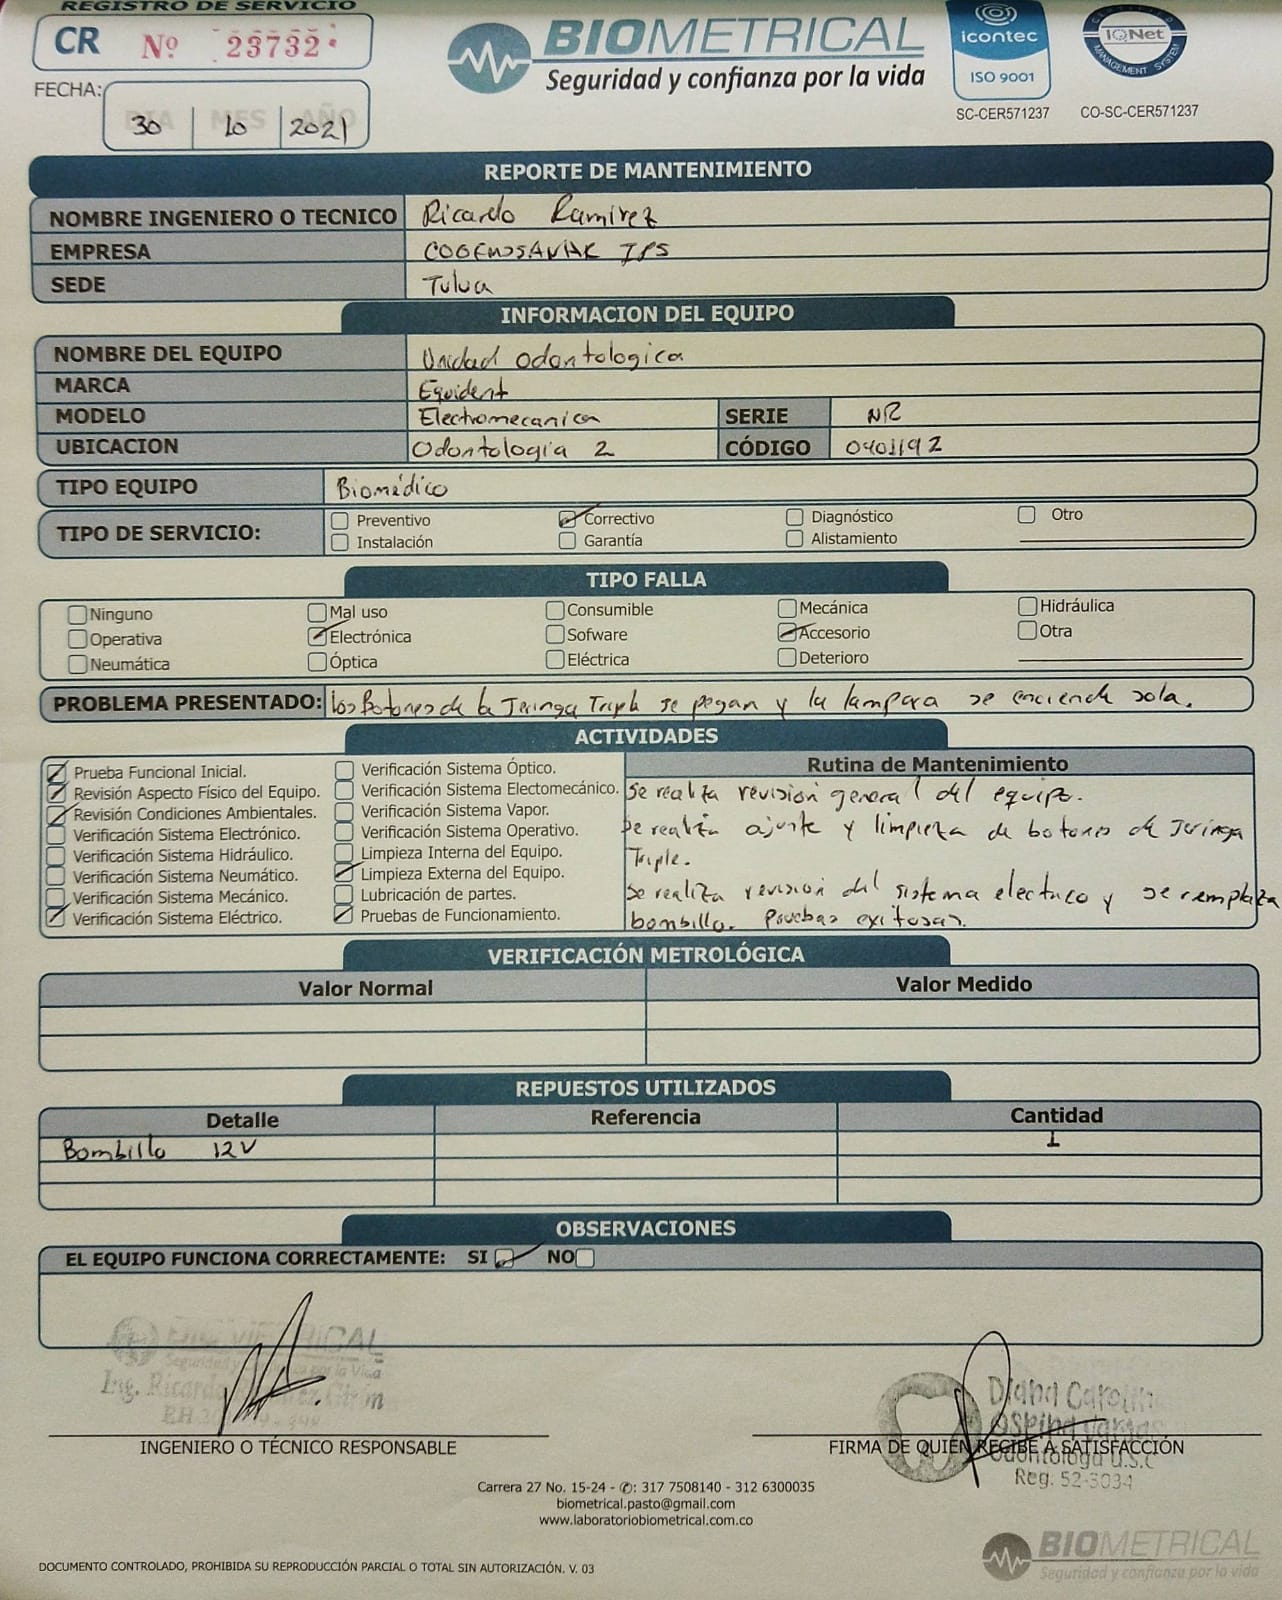 REGISTRO DE SERVICIO
CR Nº 23732
BIOMETRICAL
Seguridad y confianza por la vida
icontec
ISO 9001
SC-CER571237
CERTIFIED
IQNet
MANAGEMENT SYSTEM
CO-SC-CER571237
FECHA:
DIA MES AÑO
30 10 2021
REPORTE DE MANTENIMIENTO
NOMBRE INGENIERO O TECNICO Ricardo Ramirez
EMPRESA COOEMSSANAR IPS
SEDE Tulua
INFORMACION DEL EQUIPO
NOMBRE DEL EQUIPO Unidad Odontologica
MARCA Equident
MODELO Electromecanica SERIE NR
UBICACION Odontologia 2 CÓDIGO 0401192
TIPO EQUIPO Biomédico
TIPO DE SERVICIO:
Preventivo Correctivo Diagnóstico Otro
Instalación Garantía Alistamiento
TIPO FALLA
Ninguno Mal uso Consumible Mecánica Hidráulica
Operativa Electrónica Sofware Accesorio Otra
Neumática Óptica Eléctrica Deterioro
PROBLEMA PRESENTADO: los Botones de la Jeringa Triple se pegan y la lampara se enciende sola.
ACTIVIDADES
Prueba Funcional Inicial.
Revisión Aspecto Físico del Equipo.
Revisión Condiciones Ambientales.
Verificación Sistema Electrónico.
Verificación Sistema Hidráulico.
Verificación Sistema Neumático.
Verificación Sistema Mecánico.
Verificación Sistema Eléctrico.
Verificación Sistema Óptico.
Verificación Sistema Electomecánico.
Verificación Sistema Vapor.
Verificación Sistema Operativo.
Limpieza Interna del Equipo.
Limpieza Externa del Equipo.
Lubricación de partes.
Pruebas de Funcionamiento.
Rutina de Mantenimiento
Se realiza revisión general del equipo.
Se realiza ajuste y limpieza de botones de Jeringa
Triple.
Se realiza revisión del sistema electrico y se remplaza
bombillo. Pruebas exitosas.
VERIFICACIÓN METROLÓGICA
Valor Normal Valor Medido
REPUESTOS UTILIZADOS
Detalle Referencia Cantidad
Bombillo 12V 1
OBSERVACIONES
EL EQUIPO FUNCIONA CORRECTAMENTE: SI NO
BIOMETRICAL
Seguridad y confianza por la Vida
Ing. Ricardo Girón
INGENIERO O TÉCNICO RESPONSABLE
Diana Carolina
Ospina Vargas
Odontóloga U.S.C
Reg. 52-3034
FIRMA DE QUIEN RECIBE A SATISFACCIÓN
Carrera 27 No. 15-24 - ✆: 317 7508140 - 312 6300035
biometrical.pasto@gmail.com
www.laboratoriobiometrical.com.co
DOCUMENTO CONTROLADO, PROHIBIDA SU REPRODUCCIÓN PARCIAL O TOTAL SIN AUTORIZACIÓN. V. 03
BIOMETRICAL
Seguridad y confianza por la vida